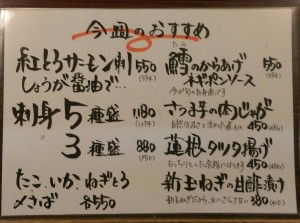 今週のおすすめ
紅とろサーモン刺 550
(594)
しょうが醤油で…
刺身5種盛 1,180
(1274)
3種盛 880
(950)
たこ、いか、ねぎとろ
〆さば 各550
たら
鱈のからあげ 550
(594)
ネギポンソース
さつま芋の肉じゃが
450
蓮根タツタ揚げ
450
新玉ねぎの甘酢漬け
380